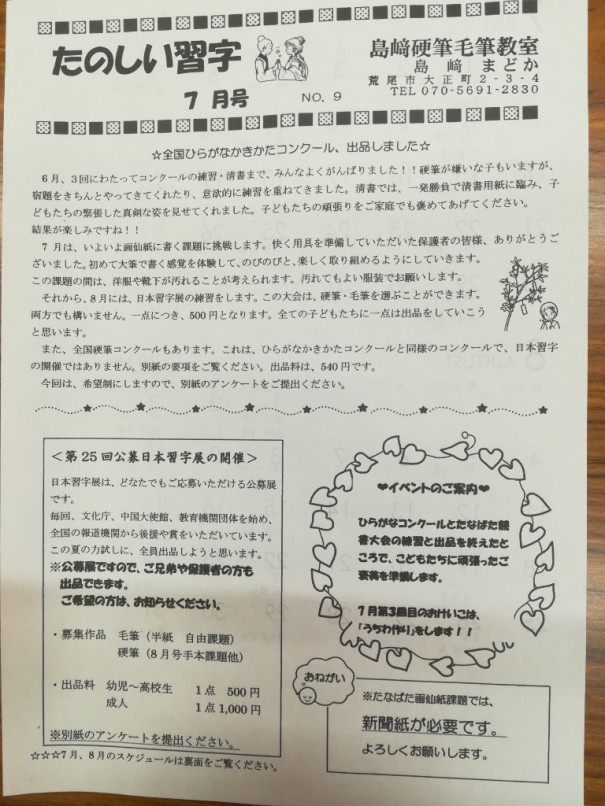 たのしい習字
7月号
NO. 9
島﨑硬筆毛筆教室
島﨑 まどか
荒尾市大正町2-3-4
TEL 070-5691-2830
☆全国ひらがなかきかたコンクール、出品しました☆
6月、3回にわたってコンクールの練習・清書まで、みんなよくがんばりました!!硬筆が嫌いな子もいますが、
宿題をきちんとやってきてくれたり、意欲的に練習を重ねてきました。清書では、一発勝負で清書用紙に臨み、子
どもたちの緊張した真剣な姿を見せてくれました。子どもたちの頑張りをご家庭でも褒めてあげてください。
結果が楽しみですね!!
7月は、いよいよ画仙紙に書く課題に挑戦します。快く用具を準備していただいた保護者の皆様、ありがとうご
ざいました。初めて大筆で書く感覚を体験して、のびのびと、楽しく取り組めるようにしていきます。
この課題の間は、洋服や靴下が汚れることが考えられます。汚れてもよい服装でお願いします。
それから、8月には、日本習字展の練習をします。この大会は、硬筆・毛筆を選ぶことができます。
両方でも構いません。一点につき、500円となります。全ての子どもたちに一点は出品をしていこう
と思います。
また、全国硬筆コンクールもあります。これは、ひらがなかきかたコンクールと同様のコンクールで、日本習字
の開催ではありません。別紙の要項をご覧ください。出品料は、540円です。
今回は、希望制にしますので、別紙のアンケートをご提出ください。
<第25回公募日本習字展の開催>
日本習字展は、どなたでもご応募いただける公募展
です。
毎回、文化庁、中国大使館、教育機関団体を始め、
全国の報道機関から後援や賞をいただいています。
この夏の力試しに、全員出品しようと思います。
※公募展ですので、ご兄弟や保護者の方も
出品できます。
ご希望の方は、お知らせください。
・募集作品 毛筆(半紙 自由課題)
硬筆(8月号手本課題他)
・出品料 幼児~高校生 1点 500円
成人 1点1,000円
※別紙のアンケートを提出ください。
☆☆☆7月、8月のスケジュールは裏面をご覧ください。
❤イベントのご案内❤
ひらがなコンクールとたなばた競
書大会の練習と出品を終えたと
ころで、こどもたちに頑張ったご
褒美を準備します。
7月第3回目のおけいこは、
「うちわ作り」をします!!
おねがい
※たなばた画仙紙課題では、
新聞紙が必要です。
よろしくお願いします。